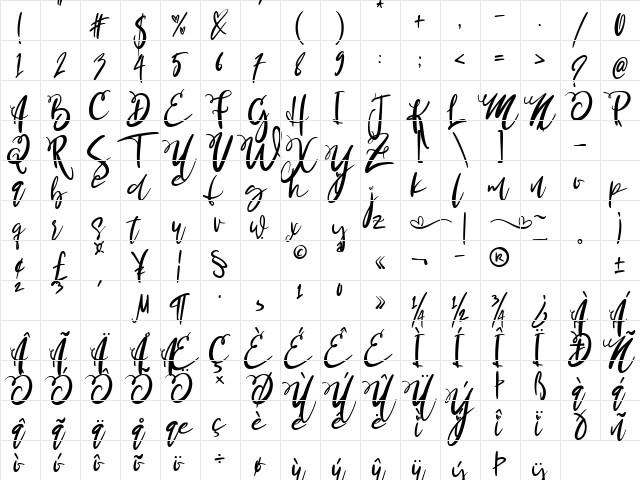 ! " # $ % & ( ) * + , - . / 0
1 2 3 4 5 6 7 8 9 : ; < = > ? @
A B C D E F G H I J K L M N O P
Q R S T U V W X Y Z [ \ ] _
a b c d e f g h i j k l m n o p
q r s t u v w x y z | ~ ¡
¢ £ ¤ ¥ ¦ § © ª « ¬ - ® ¯ ° ±
² ³ ´ µ ¶ · ¸ ¹ º » ¼ ½ ¾ ¿ À Á
Â Ã Ä Å Æ Ç È É Ê Ë Ì Í Î Ï Ð Ñ
Ò Ó Ô Õ Ö × Ø Ù Ú Û Ü Ý Þ ß à á
â ã ä å æ ç è é ê ë ì í î ï ð ñ
ò ó ô õ ö ÷ ø ù ú û ü ý þ ÿ